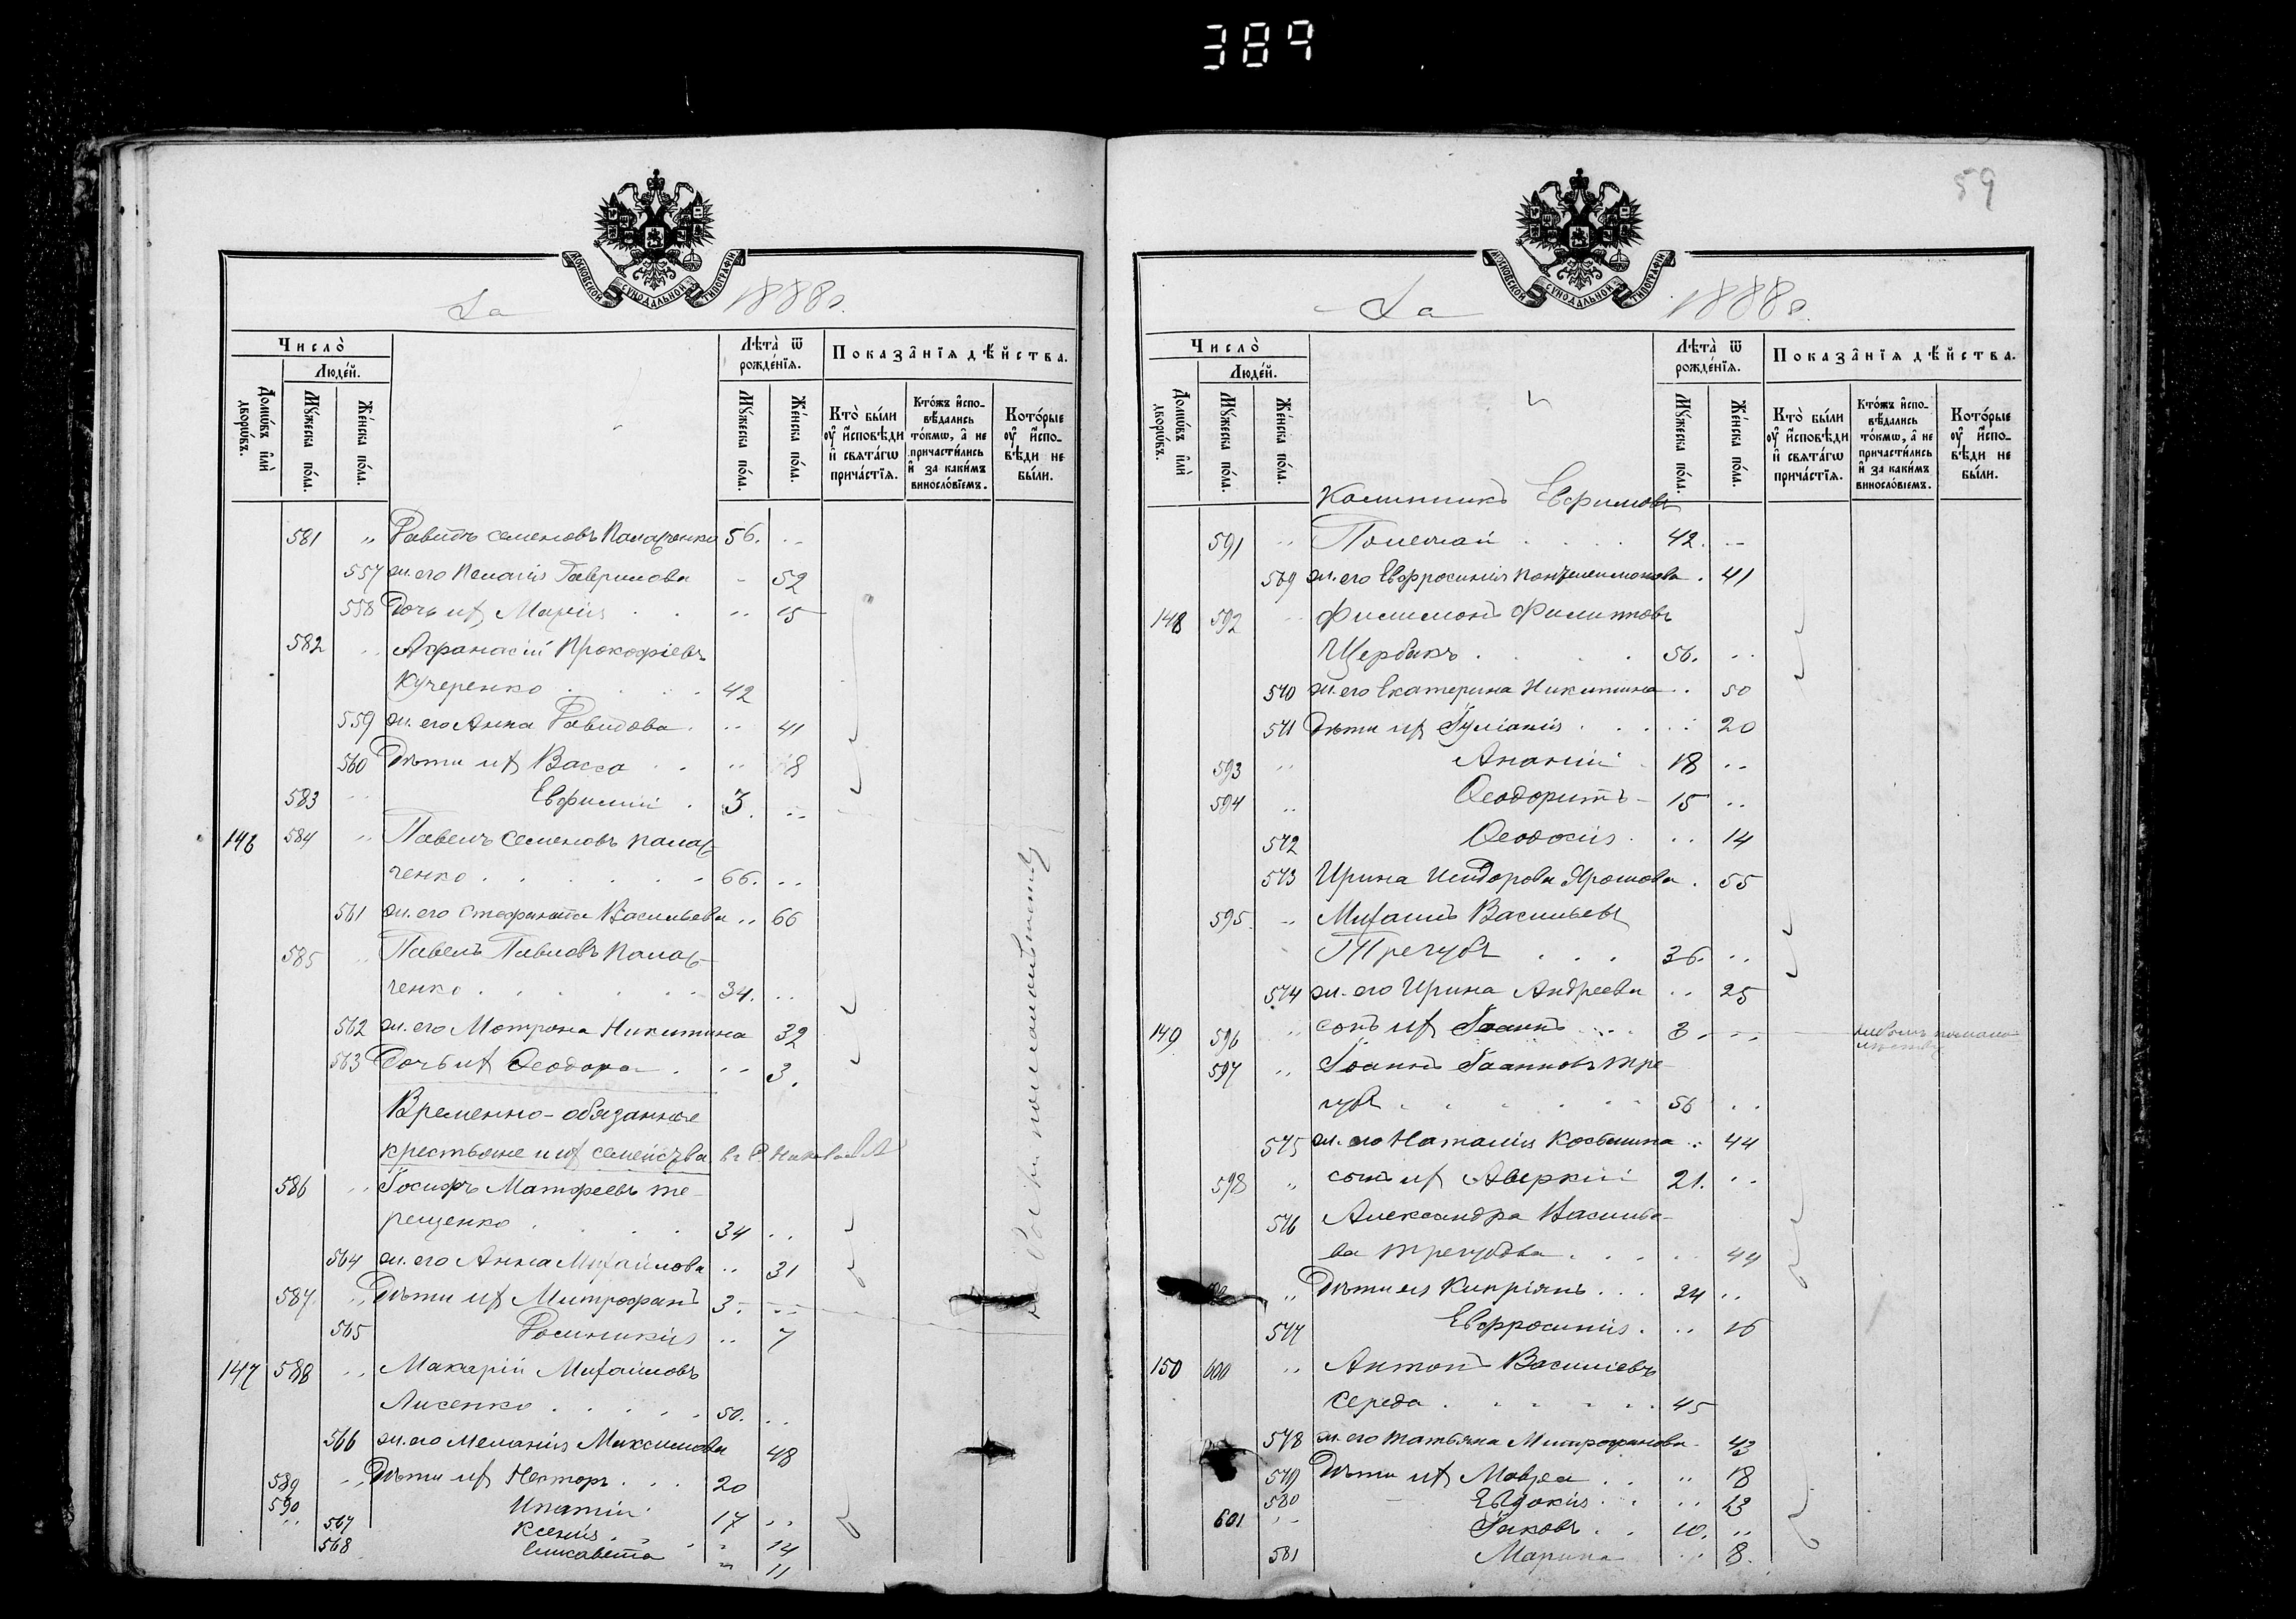 389
За 1888 г.
МОСКОВСКОЙ СУНОДАЛЬНОЙ ТИПОГРАФІИ
Число̀
Людей.
Домѡвъ и҆лѝ дворѡвъ.
Мꙋжеска по́ла.
Же́нска по́ла.
Лѣ̑та ѿ рожде́нїѧ.
Мꙋжеска по́ла.
Же́нска по́ла.
Показа̑нїѧ дѣ́йства.
Кто̀ бы́ли ᲂу҆ и҆сповѣди и҆ свѧта́гѡ прича́стїѧ.
Кто́жъ и҆спо-
вѣдались
то́кмѡ, а҆ не
причасти́лись
и҆ за каки́мъ
винослові́емъ.
Кото́рые
ᲂу҆ и҆спо-
вѣди не
бы́ли.
581 " Давидъ Семеновъ Палахченко 56. "
557 ж. его Пелагія Гаврилова - 52
558 Дочь их Марія . . " 15
582 " Афанасій Прокофіевъ
Кучеренко . . . . 42
559 ж. его Анна Давидова . " 41
560 Дѣти их Васса . . " 8
583 " Евфимій . 3. "
146 584 " Павелъ Семеновъ Палах-
ченко . . . . . . 66. "
561 ж. его Стефанида Васильева " 66
585 " Павелъ Павловъ Палах-
ченко . . . . . . 34. "
562 ж. его Мотрона Никитина 32
563 Дочь их Ѳеодора . " 3.
Временно-обязанные
крестьяне и их семейства
586 " Іосифъ Матфеевъ Те-
рещенко . . . . 34 "
564 ж. его Анна Михайлова " 31
587. " Дѣти их Митрофанъ 3. "
565 Домникія " 7
147 588 " Макарій Михайловъ
Лисенко . . . . . 50. "
566 ж. его Меланія Максимова 48
589 " Дѣти их Несторъ . . . 20
590 " Ипатій 17 "
567 Ксенія . " 14
568 Елисавета " 11
по малолѣтству
59
За 1888 г.
МОСКОВСКОЙ СУНОДАЛЬНОЙ ТИПОГРАФІИ
Число̀
Людей.
Домѡвъ и҆лѝ дворѡвъ.
Мꙋжеска по́ла.
Же́нска по́ла.
Лѣ̑та ѿ рожде́нїѧ.
Мꙋжеска по́ла.
Же́нска по́ла.
Показа̑нїѧ дѣ́йства.
Кто̀ бы́ли ᲂу҆ и҆сповѣди и҆ свѧта́гѡ прича́стїѧ.
Кто́жъ и҆спо-
вѣдались
то́кмѡ, а҆ не
причасти́лись
и҆ за каки́мъ
винослові́емъ.
Кото́рые
ᲂу҆ и҆спо-
вѣди не
бы́ли.
Калинникъ Евфимовъ
591 " . . . . 42. "
569 ж. его Евфросинія Пантелеимонова . 41
148 592 " Филимонъ Филиповъ
Щербакъ . . . . . 56. "
570 ж. его Екатерина Никитина " 50
571 Дѣти их Іуліанія . . . " 20
593 " Ананій . 18 "
594 " Ѳеодоритъ - 15 "
572 Ѳеодосія . " 14
573 Ирина Исидорова Ярошова . 55
595. " Михаилъ Васильевъ
Трегубъ . . . 36. "
574 ж. его Ирина Андреева " 25
149 596 " сынъ их Іоаннъ . . . 3. "
597 " Іоаннъ Іоанновъ Тре-
губъ . . . . . . 56 "
575 ж. его Наталія Косьмина " 44
598 " сынъ их Аверкій 21. "
576 Александра Василье-
ва Трегубова . . . . 44
" Дѣти ея Кипріянъ . . . 24 "
577 Евфросинія . " 16
150 600 " Антонъ Василіевъ
Середа . . . . . . 45
578 ж. его Татьяна Митрофанова - 43
579 Дѣти их Мавра . . " 18
580 Евдокія . . " 13
601 " Іаковъ . . 10. "
581 Марина " 8.